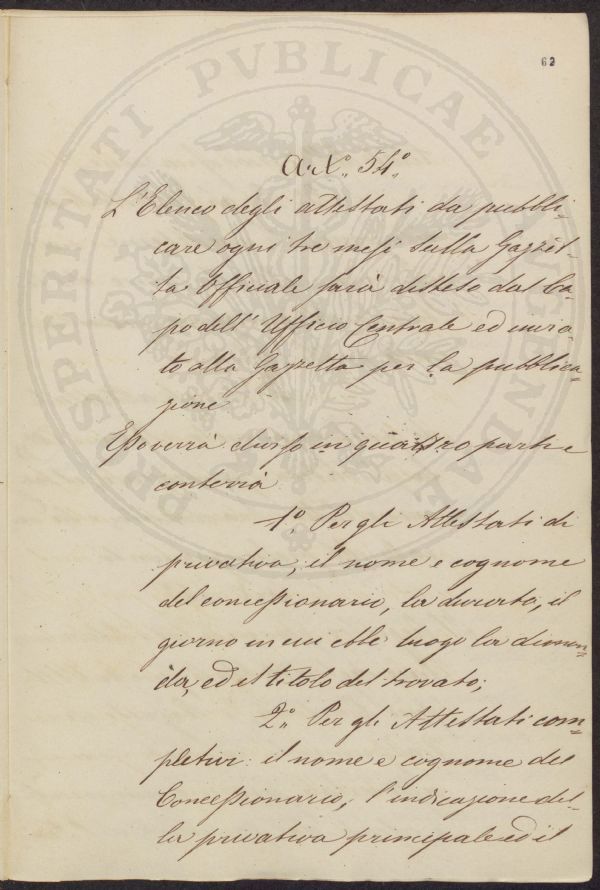 62
PROSPERITATI PVBLICAE AVGENDAE
Art.º 54º
L'Elenco degli attestati da pubbli-
care ogni tre mesi sulla Gazzet-
ta Officiale sarà disteso dal Ca-
po dell' Ufficio Centrale ed invia-
to alla Gazzetta per la pubblica-
zione
Esso verrà diviso in quattro parti e
conterrà
1.º Per gli Attestati di
privativa, il nome e cognome
del concessionario, la durata, il
giorno in cui ebbe luogo la diman-
da, ed il titolo del trovato;
2.º Per gli Attestati com-
pletivi: il nome e cognome del
Concessionario, l'indicazione del-
la privativa principale ed il